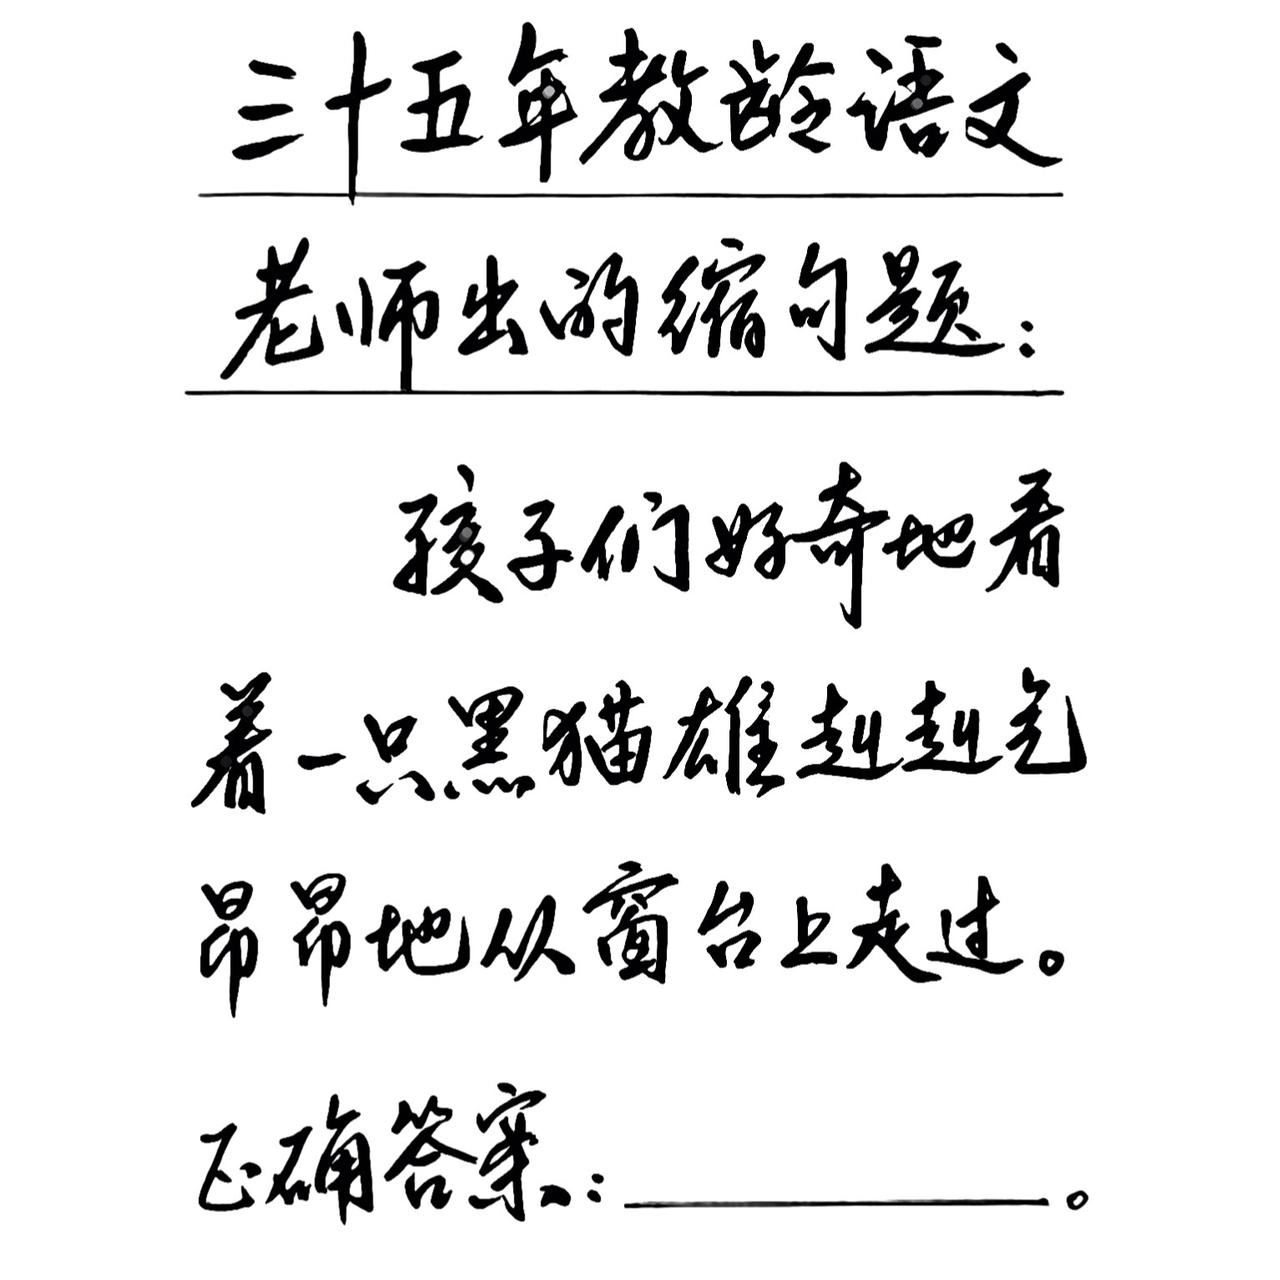 三十五年教龄语文
老师出的缩句题：
孩子们好奇地看
着一只黑猫雄赳赳气
昂昂地从窗台上走过。
正确答案：________。